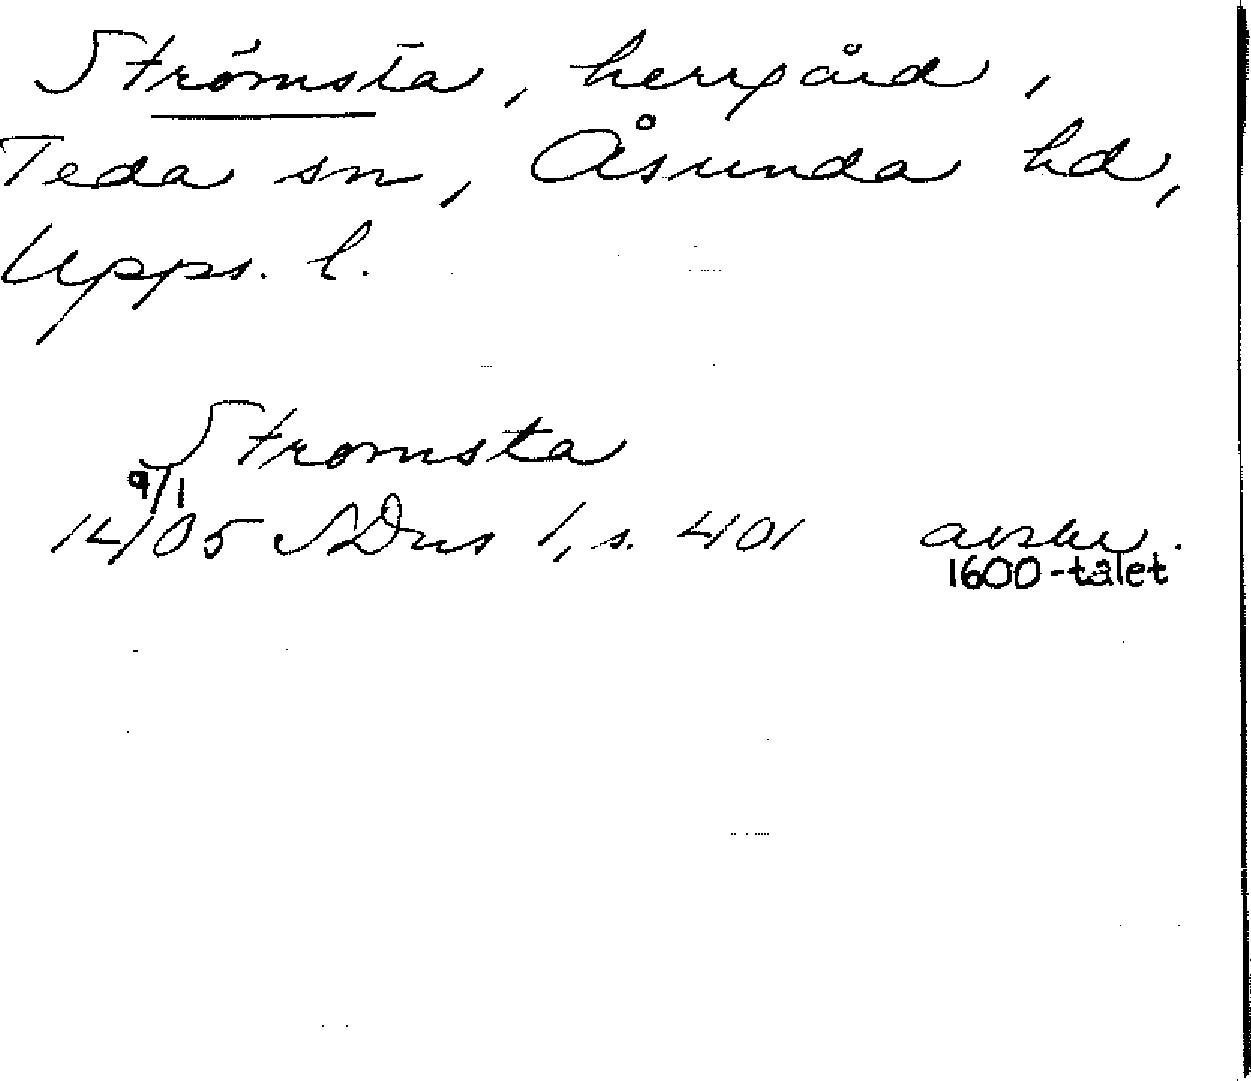 Strömsta, herrgård,
Teda sn, Åsunda hd,
Upps. l.
Stromsta
9/1
14/05 SDns 1, s. 401 avskr.
1600-talet